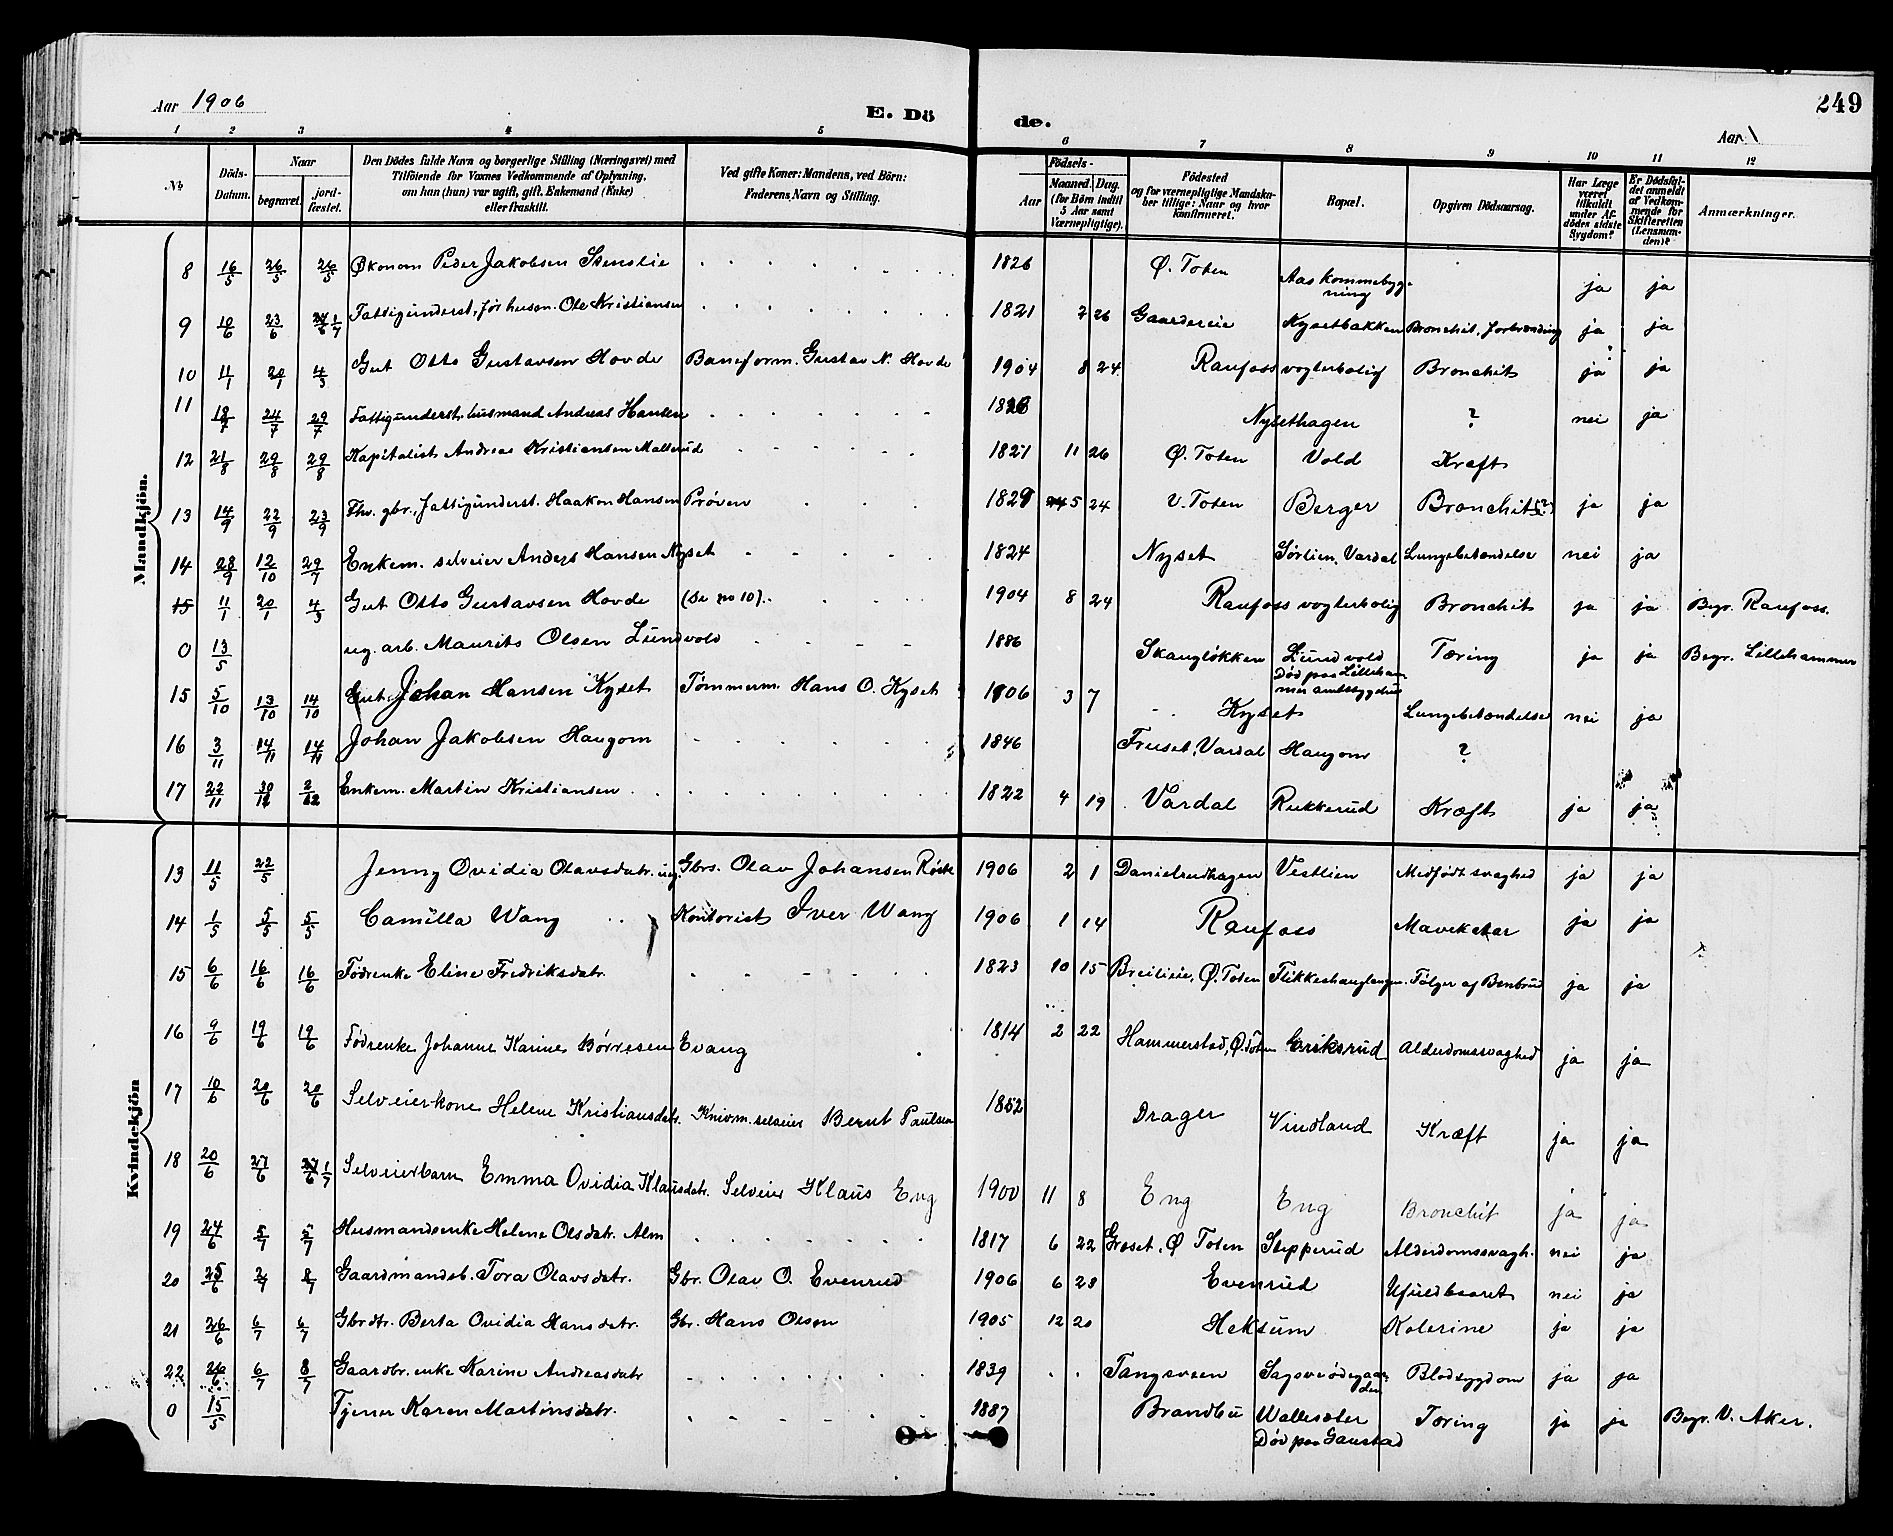 Aar 1906
E. Dö
de.
249
Aar
1 2 3 4 5 6 7 8 9 10 11 12
No
Döds-Datum.
Naar begravet. jordfæstet.
Den Dödes fulde Navn og borgerlige Stilling (Næringsvei) med Tilföiende for Voxnes Vedkommende af Oplysning, om han (hun) var ugift, gift, Enkemand (Enke) eller fraskilt.
Ved gifte Koner: Mandens, ved Börn: Faderens Navn og Stilling.
Födsels- Aar Maaned. Dag. (for Börn indtil 5 Aar samt Værnepligtige).
Födested og for værnepligtige Mandskaber tillige: Naar og hvor konfirmeret.
Bopæl.
Opgiven Dödsaarsag.
Har Læge været tilkaldt under Afdödes sidste Sygdom?
Er Dödsfaldet anmeldt af Vedkommende for Skifteretten (Lensmanden)?
Anmærkninger.
Mandkjön.
8 16/5 26/5 26/5 Økonom Peder Jakobsen Stenslie 1826 Ø. Toten Aas kommebygning ja ja
9 10/6 23/6 1/7 Fattigunderst, før husm. Ole Kristiansen 1821 2 26 Gaardereie Kysetbakken Bronchit, forbrænding ja ja
10 11/1 20/1 4/3 Gut Otto Gustavsen Hovde Baneform. Gustav N. Hovde 1904 8 24 Raufoss vogterbolig Bronchit ja ja
11 18/7 24/7 29/7 Fattigunderst. husmand Andreas Hansen Nysethagen ? nei ja
12 21/8 29/8 29/8 Kapitalist Andreas Kristiansen Mallerud 1827 11 26 Ø. Toten Vold Kræft
13 14/9 22/9 23/9 Fhv. gbr., fattigunderst. Haakon Hansen Prøven 1829 5 24 V. Toten Berger Bronchit (?) ja ja
14 28/9 12/10 29/7 Enkem. selveier Anders Hansen Nyset 1824 Nyset Sørlien, Vardal Lungebetændelse nei ja
15 11/1 20/1 4/3 Gut Otto Gustavsen Hovde (Se no 10) 1904 8 24 Raufoss vogterbolig Bronchit ja ja Begr. Raufoss.
0 13/5 ug. arb. Maurits Olsen Lundvold 1886 Skaugløkken Lundvold Død paa Lillehammer amtssygehus Tæring ja ja Begr. Lillehammer
15 5/10 13/10 14/10 Gut Johan Hansen Kyset Tømmerm. Hans O. Kyset 1906 3 7 Kyset Lungebetændelse nei ja
16 3/11 14/11 14/11 Johan Jakobsen Haugom 1846 Fruset, Vardal Haugom ?
17 22/11 30/12 2/12 Enkem. Martin Kristiansen 1822 4 19 Vardal Rukkerud Kræft ja ja
Kvindekjön
13 11/5 22/5 Jenny Ovidia Olavsdatr. ug. Gbrs. Olav Johansen 1906 2 1 Danielrudhagen Vestlien Medfødt svaghed ja ja
14 1/5 5/5 5/5 Camilla Wang Kontorist Iver Wang 1906 1 14 Raufoss Mavekatar ja ja
15 6/6 16/6 16/6 Fødrenke Eline Fredriksdatr. 1823 10 15 Breilieie, Ø. Toten Flikkeshaughagen Følger af Benbrud ja ja
16 9/6 19/6 19/6 Fødrenke Johanne Karine Børresen Evang 1814 2 22 Hammerstad, Ø. Toten Eriksrud Alderdomssvaghed ja ja
17 10/6 20/6 20/6 Selveierkone Helene Kristiansdatr. Knivm. selveier Bernt Paulsen 1852 Drager Vindland Kræft ja ja
18 20/6 27/6 1/7 Selveierbarn Emma Ovidia Klausdatr. Selveier Klaus Eng 1900 11 8 Eng Eng Bronchit ja ja
19 24/6 5/7 5/7 Husmandsenke Helene Olsdatr. Alm 1817 6 22 Græset, Ø Toten Stepperud Alderdomssvagh. nei ja
20 25/6 2/7 8/7 Gaardmandsb. Tora Olavsdatr. Gbr. Olav O. Evenrud 1906 6 23 Evenrud Ufuldbaaret nei ja
21 26/6 6/7 6/7 Gbrdtr. Berta Ovidia Hansdatr. Gbr. Hans Olsen 1905 12 20 Heksum Kolerine ja ja
22 26/6 6/7 8/7 Gaardbr.enke Karine Andreasdatr 1839 Tangsveen Sagsveødegaarden Blodsygdom ja ja
0 15/5 Tjener Karen Martinsdatr. 1887 Brandbu Wallesæter Død paa Gaustad Tæring ja ja Begr. V. Aker.